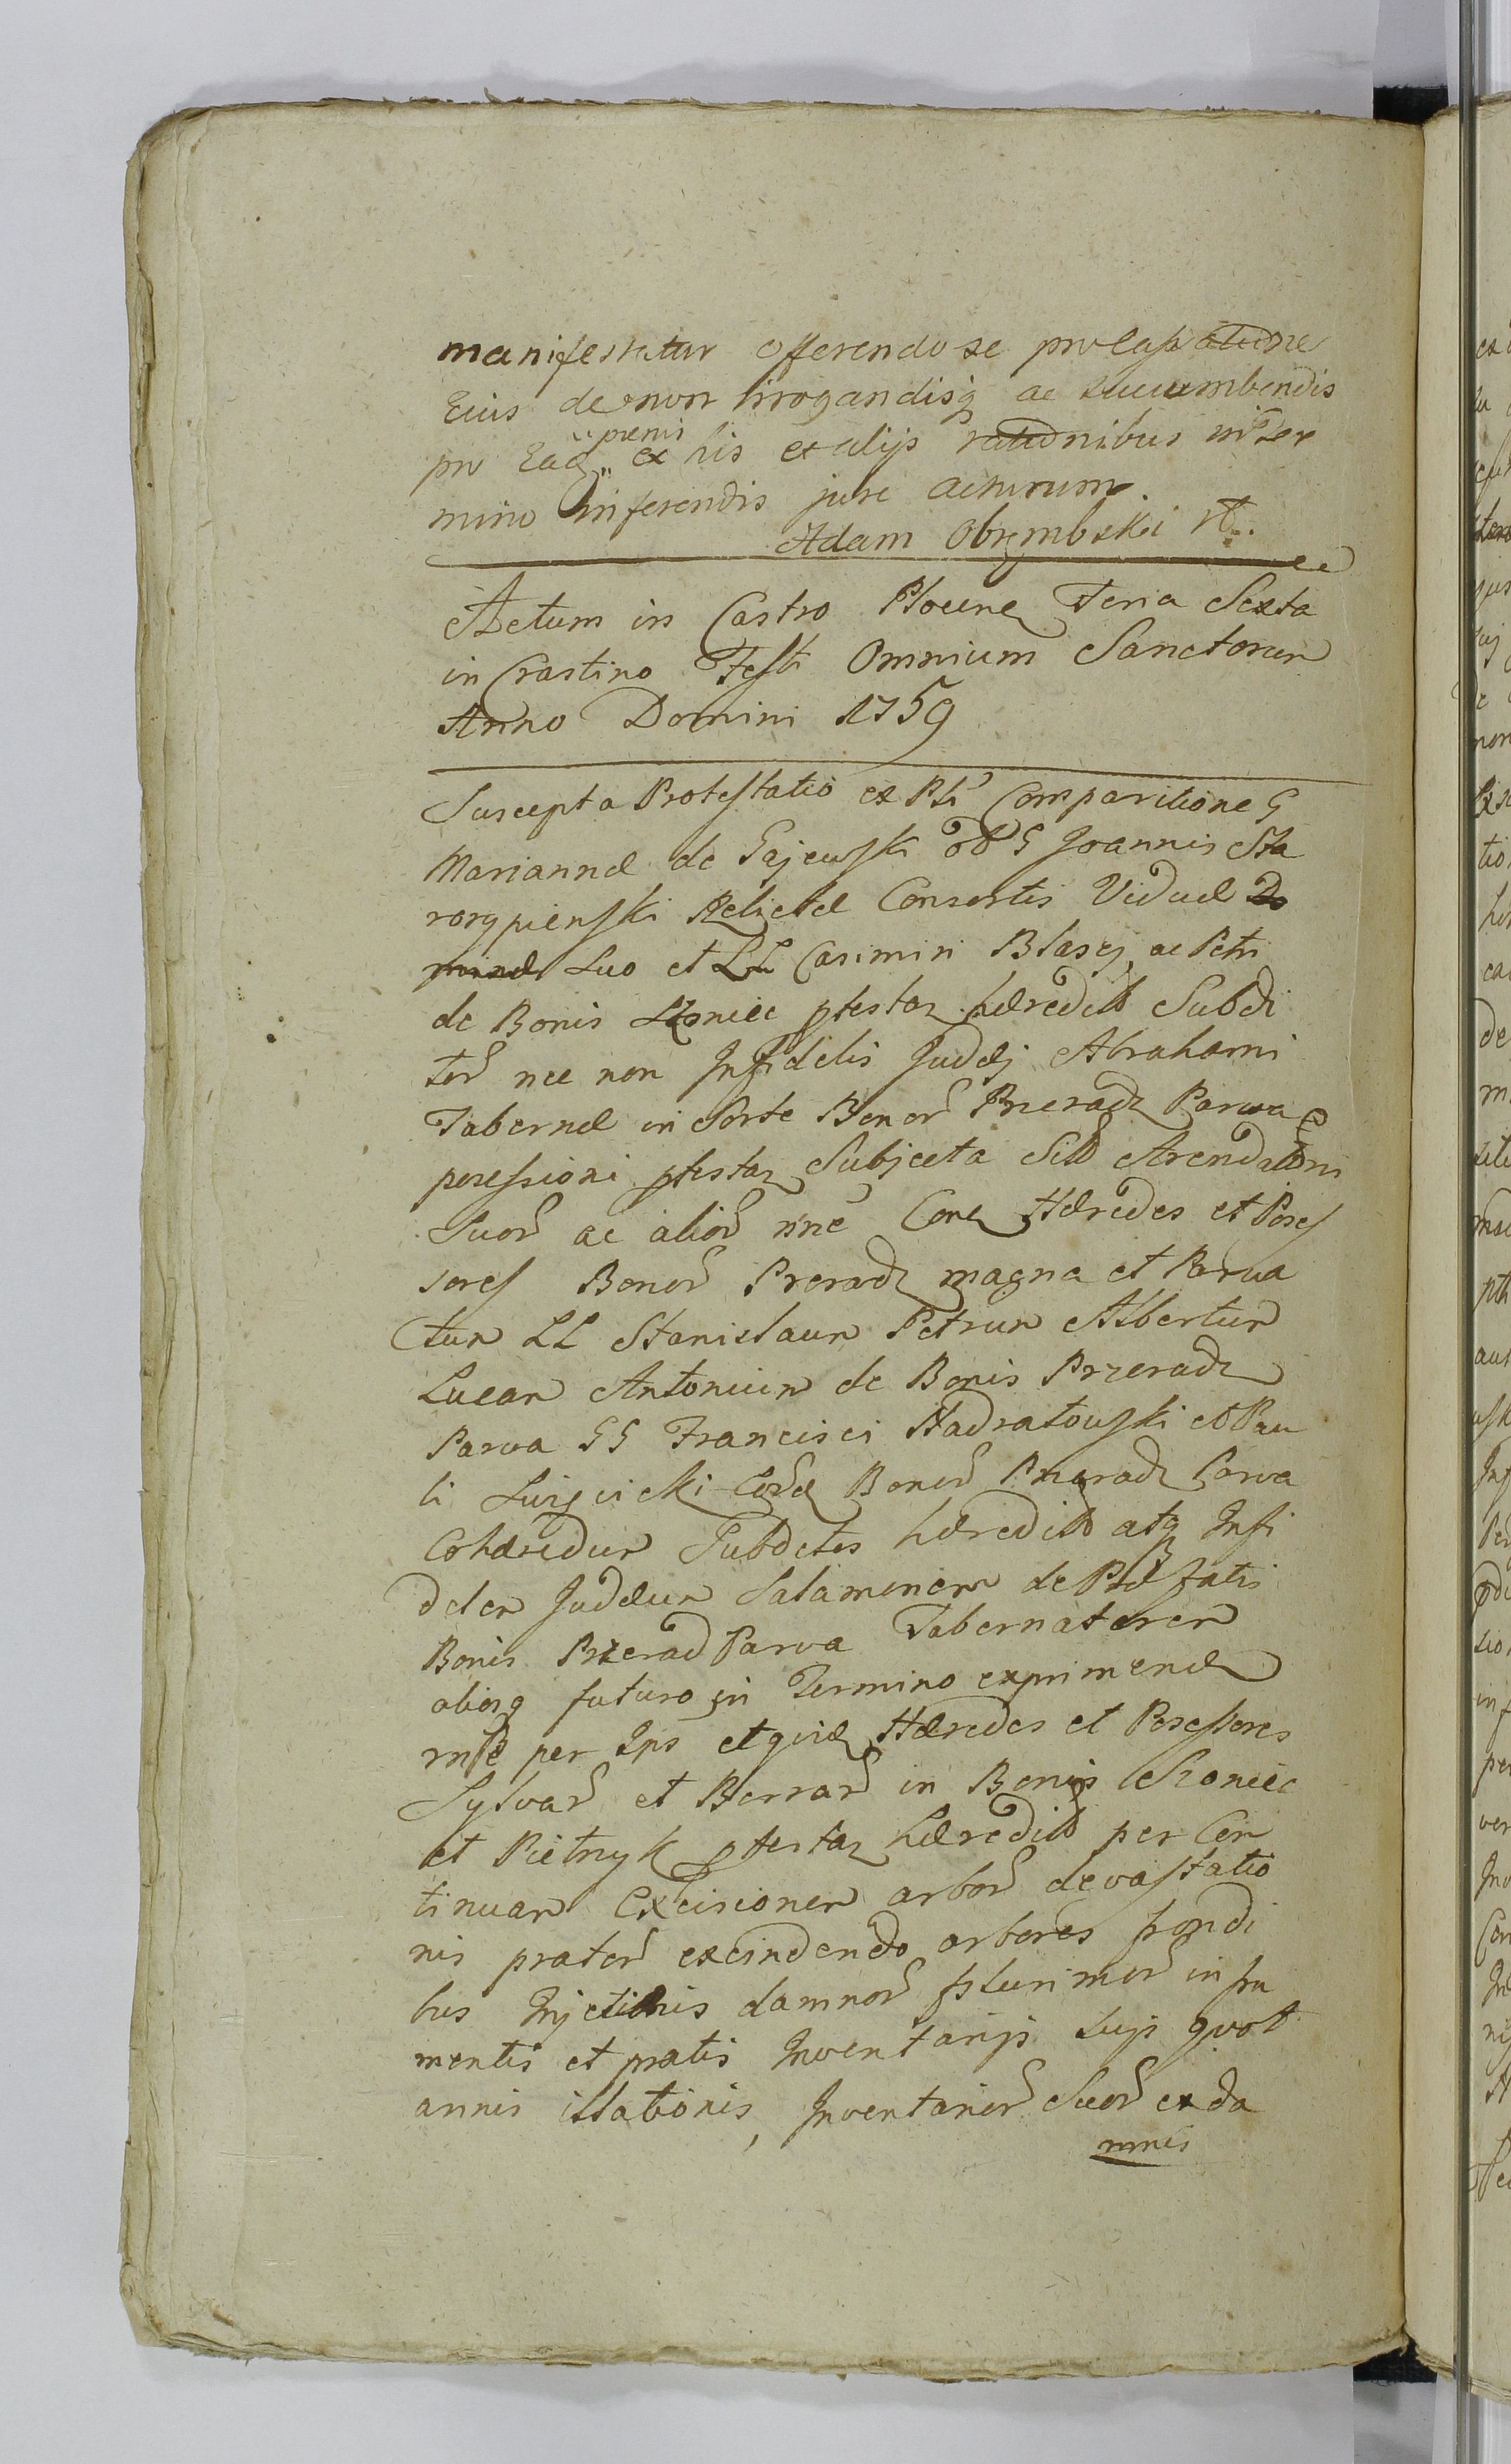 manifestatur offerendo se pro
Eius de non irrogandisq ac succumbendis
pænis
pro Eadq ex his et alijs rationibus in Ter
mino inferendis jure acturum.
Adam Obrembski
Actum in Castro Plocen Feria Sexta
in Crastino Festi Omnium Sanctorum
Anno Domini 1759
Suscepta Protestatio ex Pti Comparitione G
Mariannæ de Gajewski G Joannis Sta
rorypienski Relictæ Consortis Viduæ Do
minæ Suo et LL Casimiri Blasej ac Petri
de Bonis ptestaz hæredit Subdi
tor nec non Infidelis Judæj Abrahami
Tabernæ in Sorte Bonor Przeradz Parva
possessioni ptestaz Subjecta Arendatoris
Suor ac alior nne Cone Hæredes et Posses
sores Bonor Preradz magna et Parva
tum LL Stanislaum Petrum Albertum
Lucam Antonium de Bonis Przeradz
Parva GG Francisci Nadratowski et Pau
li Bonor Przeradz Parva
Cohæredum Subdetos hæredit atq Infi
delem Judæum Salamonem de Præfatis
Bonis Przerad Parva Tabernatorem
aliosq futuro in Termino exprimend
per Ips Hæredes et Posessores
Sylvar et Borrar in Bonis Szoniec
et Pietrzyk ptestaz hæredit per Con
tinuam Excisionem arbor devastatio
nis prator excindendo arbores frondi
bus Injectionis damnor plurimor in fru
mentis et pratis Inventarijs suis quot
annis illationis, Inventarior Suor ex da
mnis